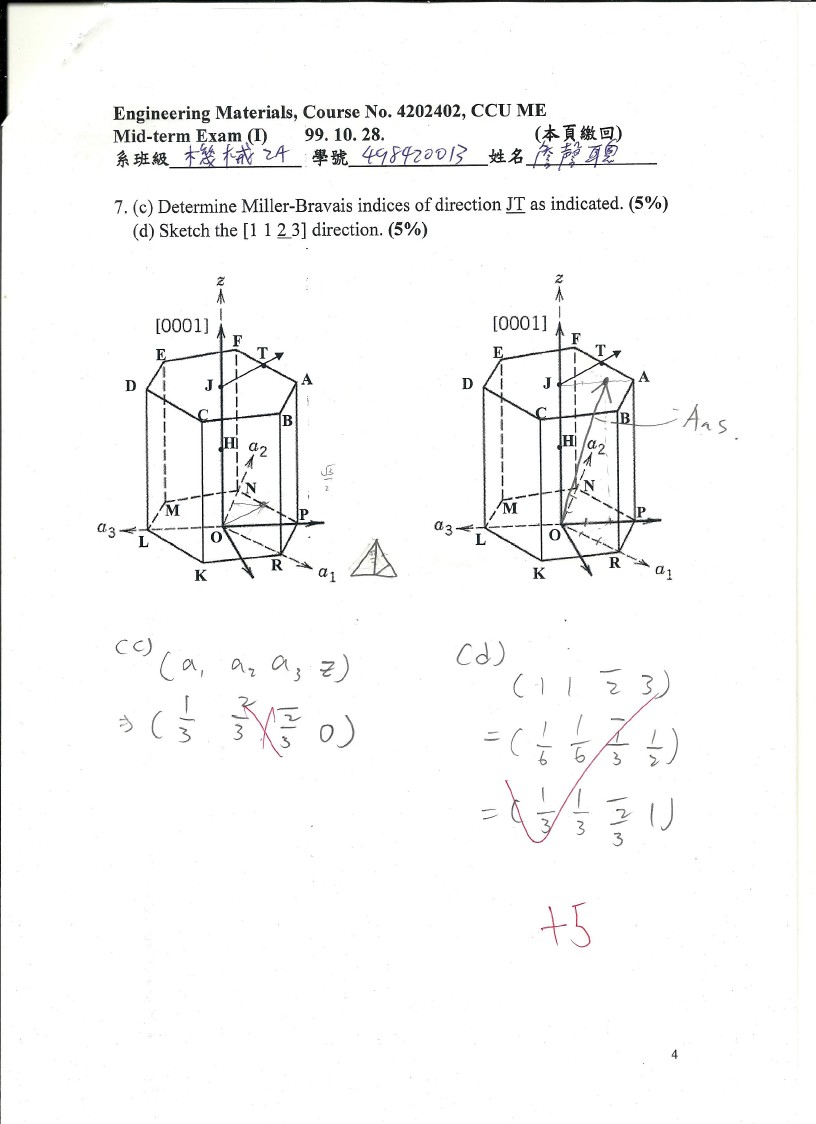 Engineering Materials, Course No. 4202402, CCU ME
Mid-term Exam (I) 99. 10. 28. (本頁繳回)
系班級 機械 2A 學號 498420013 姓名 聰
7. (c) Determine Miller-Bravais indices of direction JT as indicated. (5%)
(d) Sketch the [1 1 2 3] direction. (5%)
z
[0001]
E F T
D J A
C B
H a2
N
M
a3 L O P
K R a1
√2/2
z
[0001]
E F T
D J A
C B
Ans.
H a2
N
M
a3 L O P
K R a1
(c) (a1 a2 a3 z)
⇒ (1/3 2/3 2̅/3 0)
(d)
(1 1 2̅ 3)
= (1/6 1/6 1̅/3 1/2)
= (1/3 1/3 2̅/3 1)
+5
4